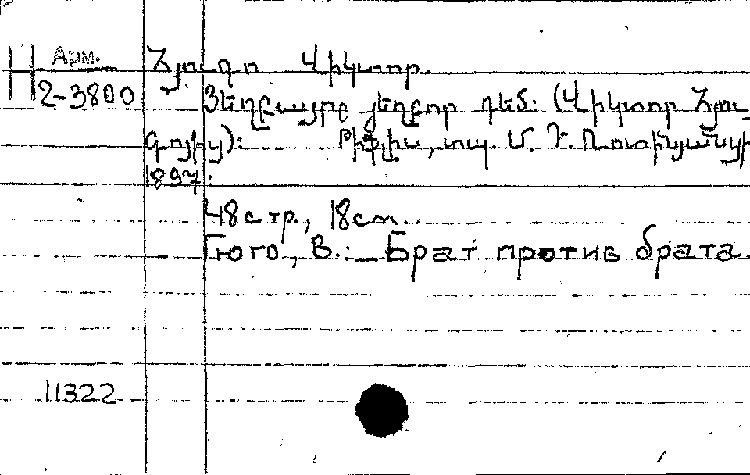 Арм.
Հյուգո Վիկտոր.
2-3800
Յեղբայրը յեղբոր դեմ։ (Վիկտոր Հյու-
գոյից)։ Թիֆլիս, տպ. Մ. Դ. Ռոտինյանցի
1897։
48 стр., 18 см.
Гюго, В.: Брат против брата.
11322